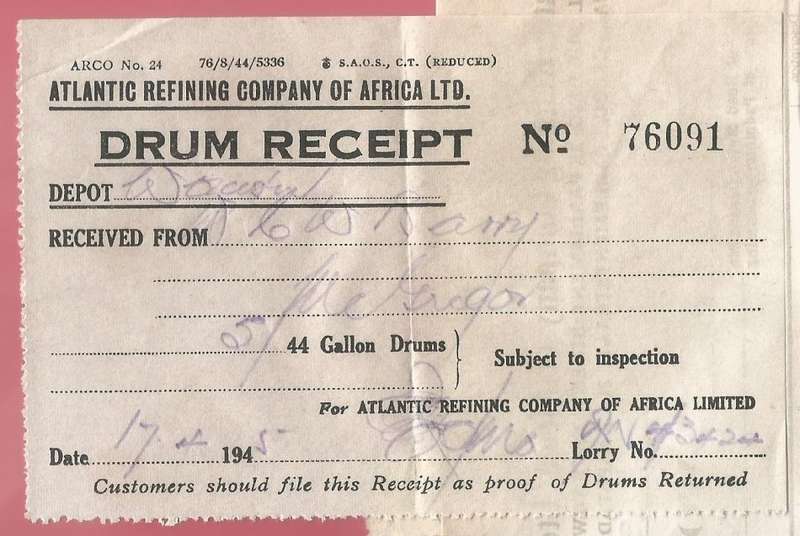 ARCO No. 24 76/8/44/5336 S.A.O.S., C.T. (REDUCED)
ATLANTIC REFINING COMPANY OF AFRICA LTD.
DRUM RECEIPT Nº 76091
DEPOT
RECEIVED FROM Barry
McGregor
5 44 Gallon Drums
Subject to inspection
For ATLANTIC REFINING COMPANY OF AFRICA LIMITED
Date 17 4 1945 Lorry No.
Customers should file this Receipt as proof of Drums Returned